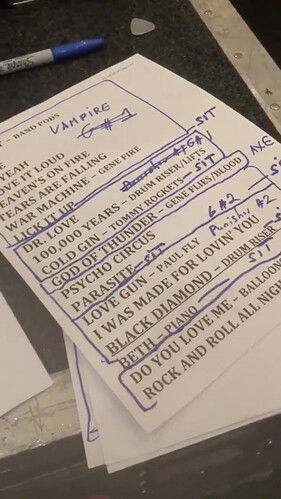 - BAND PODS
VAMPIRE
G#1
YEAH
LOVE IT LOUD
HEAVEN'S ON FIRE
TEARS ARE FALLING
WAR MACHINE - GENE FIRE
LICK IT UP
SIT
DR. LOVE
100,000 YEARS - DRUM RISER/LIFTS
AXE
COLD GIN - TOMMY ROCKETS - SIT
GOD OF THUNDER - GENE FLIES/BLOOD
PSYCHO CIRCUS
PARASITE - SIT
G#2
LOVE GUN - PAUL FLY Punisher #2
I WAS MADE FOR LOVIN YOU
BLACK DIAMOND - DRUM RISER
SIT
BETH - PIANO
DO YOU LOVE ME - BALLOON
ROCK AND ROLL ALL NIGH